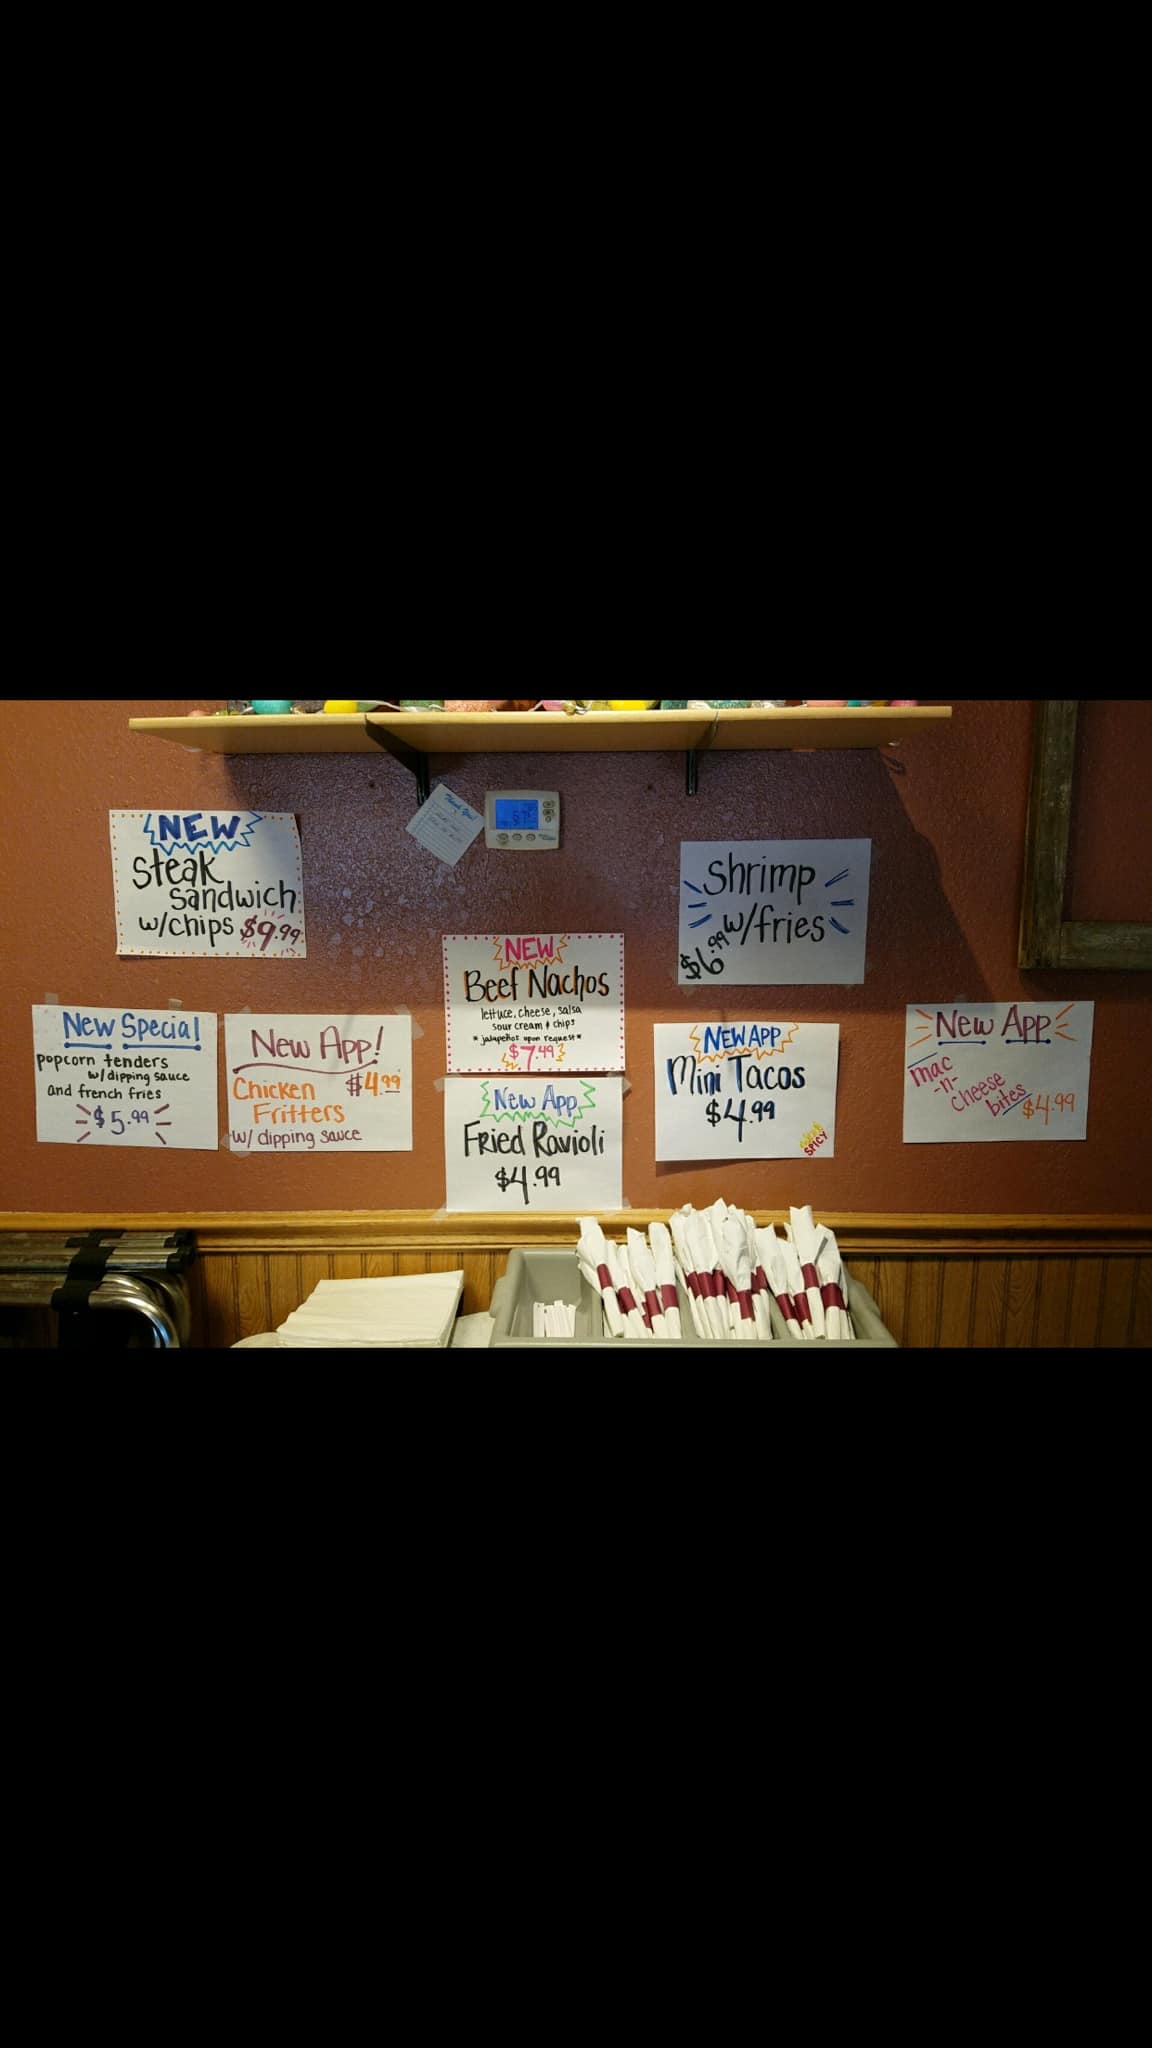 NEW
Steak
sandwich
w/chips $9.99
Thank You!
Shrimp
w/fries
$6.99
NEW
Beef Nachos
lettuce, cheese, salsa
sour cream & chips
*jalapeños upon request*
$7.49
New Special
popcorn tenders
w/dipping sauce
and french fries
$5.99
New App!
Chicken $4.99
Fritters
w/ dipping sauce
New App
Fried Ravioli
$4.99
NEW APP
Mini Tacos
$4.99
SPICY
New App
mac
-n-
cheese
bites $4.99